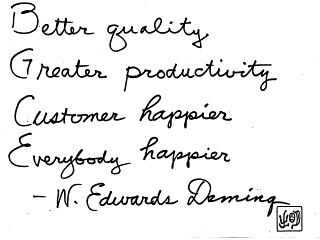 Better quality
Greater productivity
Customer happier
Everybody happier
- W. Edwards Deming